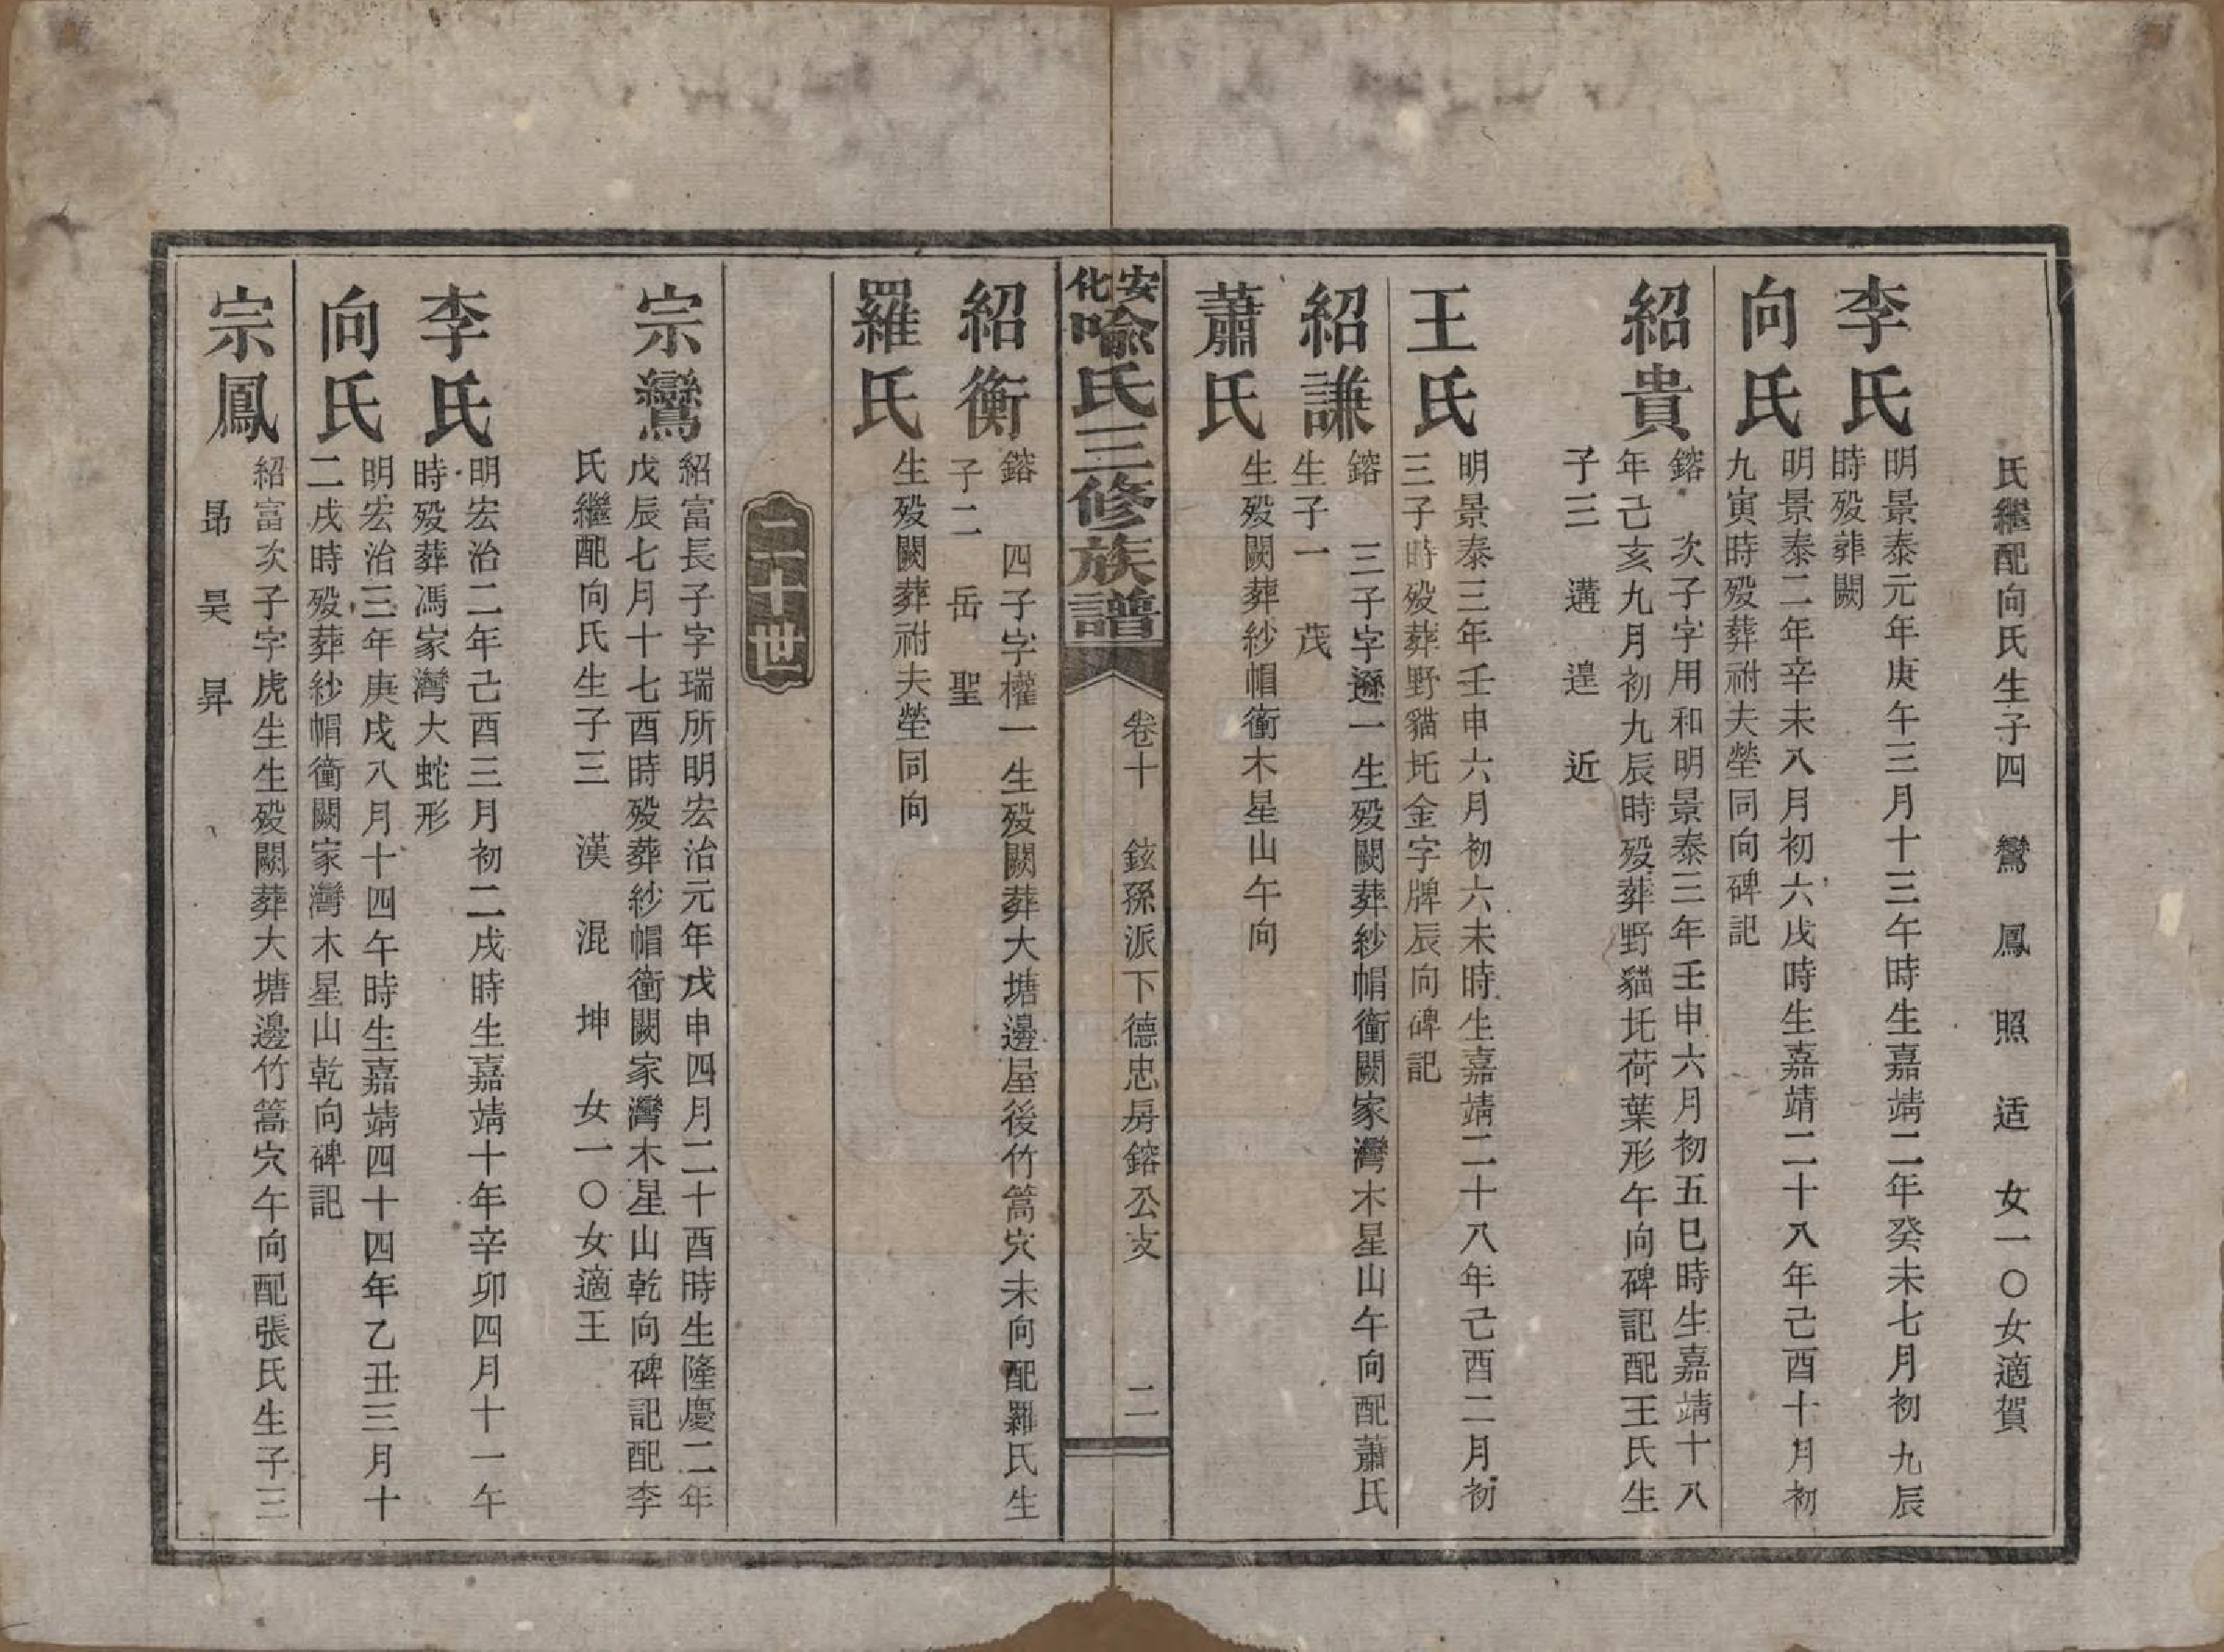 氏繼配向氏生子四 鸞 鳳 照 适 女一〇女適賀
李氏
明景泰元年庚午三月十三午時生嘉靖二年癸未七月初九辰
時殁葬闕
向氏
明景泰二年辛未八月初六戌時生嘉靖二十八年己酉十月初
九寅時殁葬祔夫塋同向碑記
紹貴
鎔 次子字用和明景泰三年壬申六月初五巳時生嘉靖十八
年己亥九月初九辰時殁葬野貓圫荷葉形午向碑記配王氏生
子三 遘 遑 近
王氏
明景泰三年壬申六月初六未時生嘉靖二十八年己酉二月初
三子時殁葬野貓圫金字牌辰向碑記
紹謙
鎔 三子字遜一生殁闕葬紗帽衝闕家灣木星山午向配蕭氏
生子一 茂
蕭氏
生殁闕葬紗帽衝木星山午向
安化喻氏三修族譜 卷十 鉉孫派下德忠房鎔公支 二
紹衡
鎔 四子字權一生殁闕葬大塘邊屋後竹篙穴未向配羅氏生
子二 岳 聖
羅氏
生殁闕葬祔夫塋同向
二十世
宗鸞
紹富長子字瑞所明宏治元年戊申四月二十酉時生隆慶二年
戊辰七月十七酉時殁葬紗帽衝闕家灣木星山乾向碑記配李
氏繼配向氏生子三 漢 混 坤 女一〇女適王
李氏
明宏治二年己酉三月初二戌時生嘉靖十年辛卯四月十一午
時殁葬馮家灣大蛇形
向氏
明宏治三年庚戌八月十四午時生嘉靖四十四年乙丑三月十
二戌時殁葬紗帽衝闕家灣木星山乾向碑記
宗鳳
紹富次子字虎生生殁闕葬大塘邊竹篙穴午向配張氏生子三
昂 昊 昇